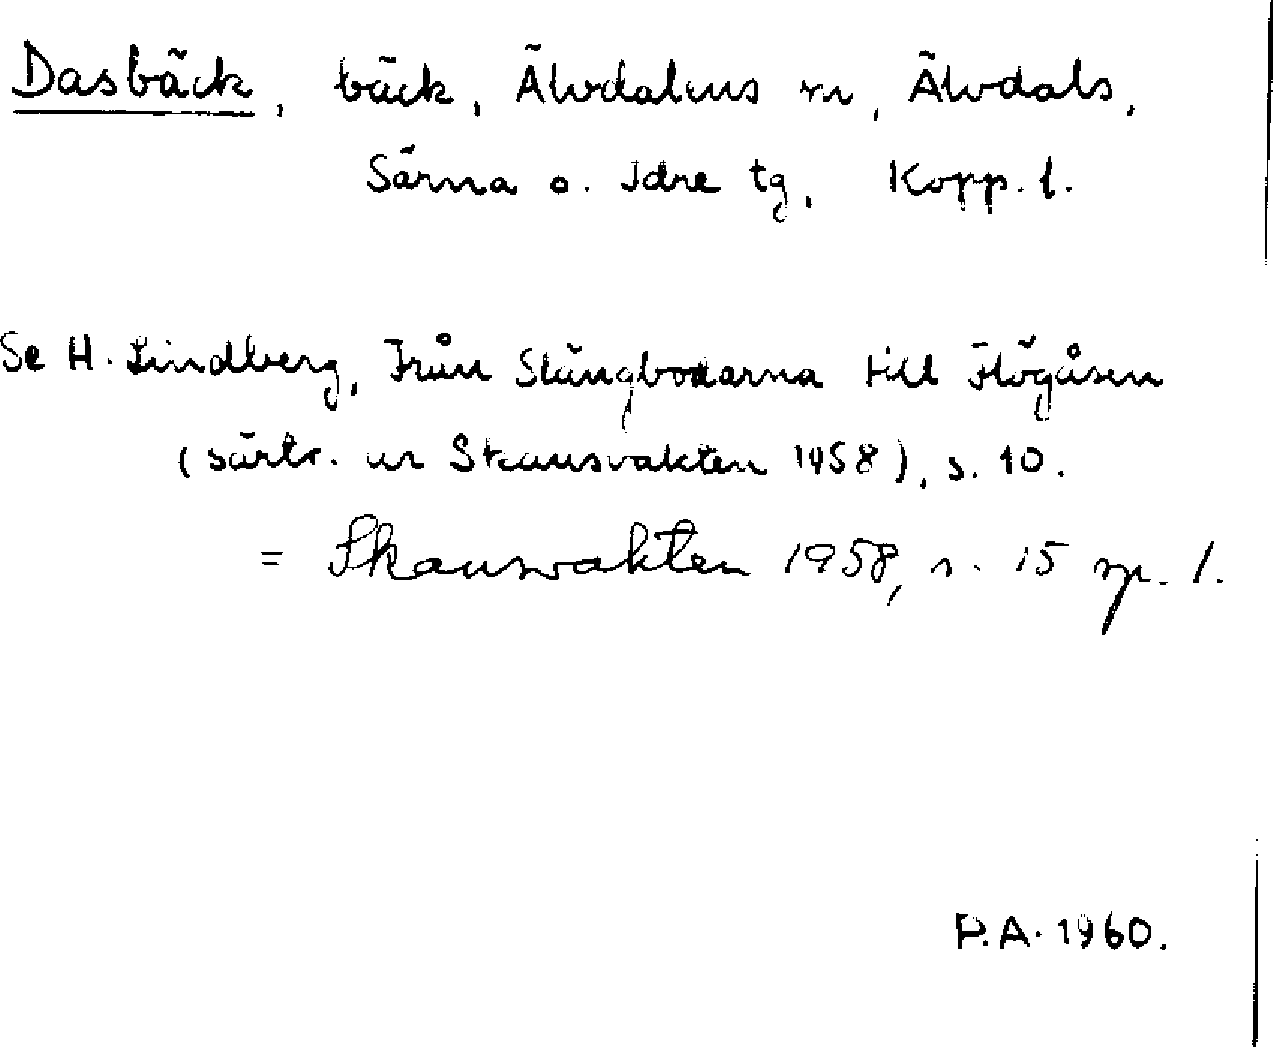 Dasbäck, bäck, Älvdalens sn, Älvdals,
Särna o. Idre tg, Kopp. l.
Se H. Lindberg, Från Stängbodarna till Flögåsen
(särtr. ur Skansvakten 1958), s. 10.
= Skansvakten 1958, s. 15 sp. 1.
P.A. 1960.